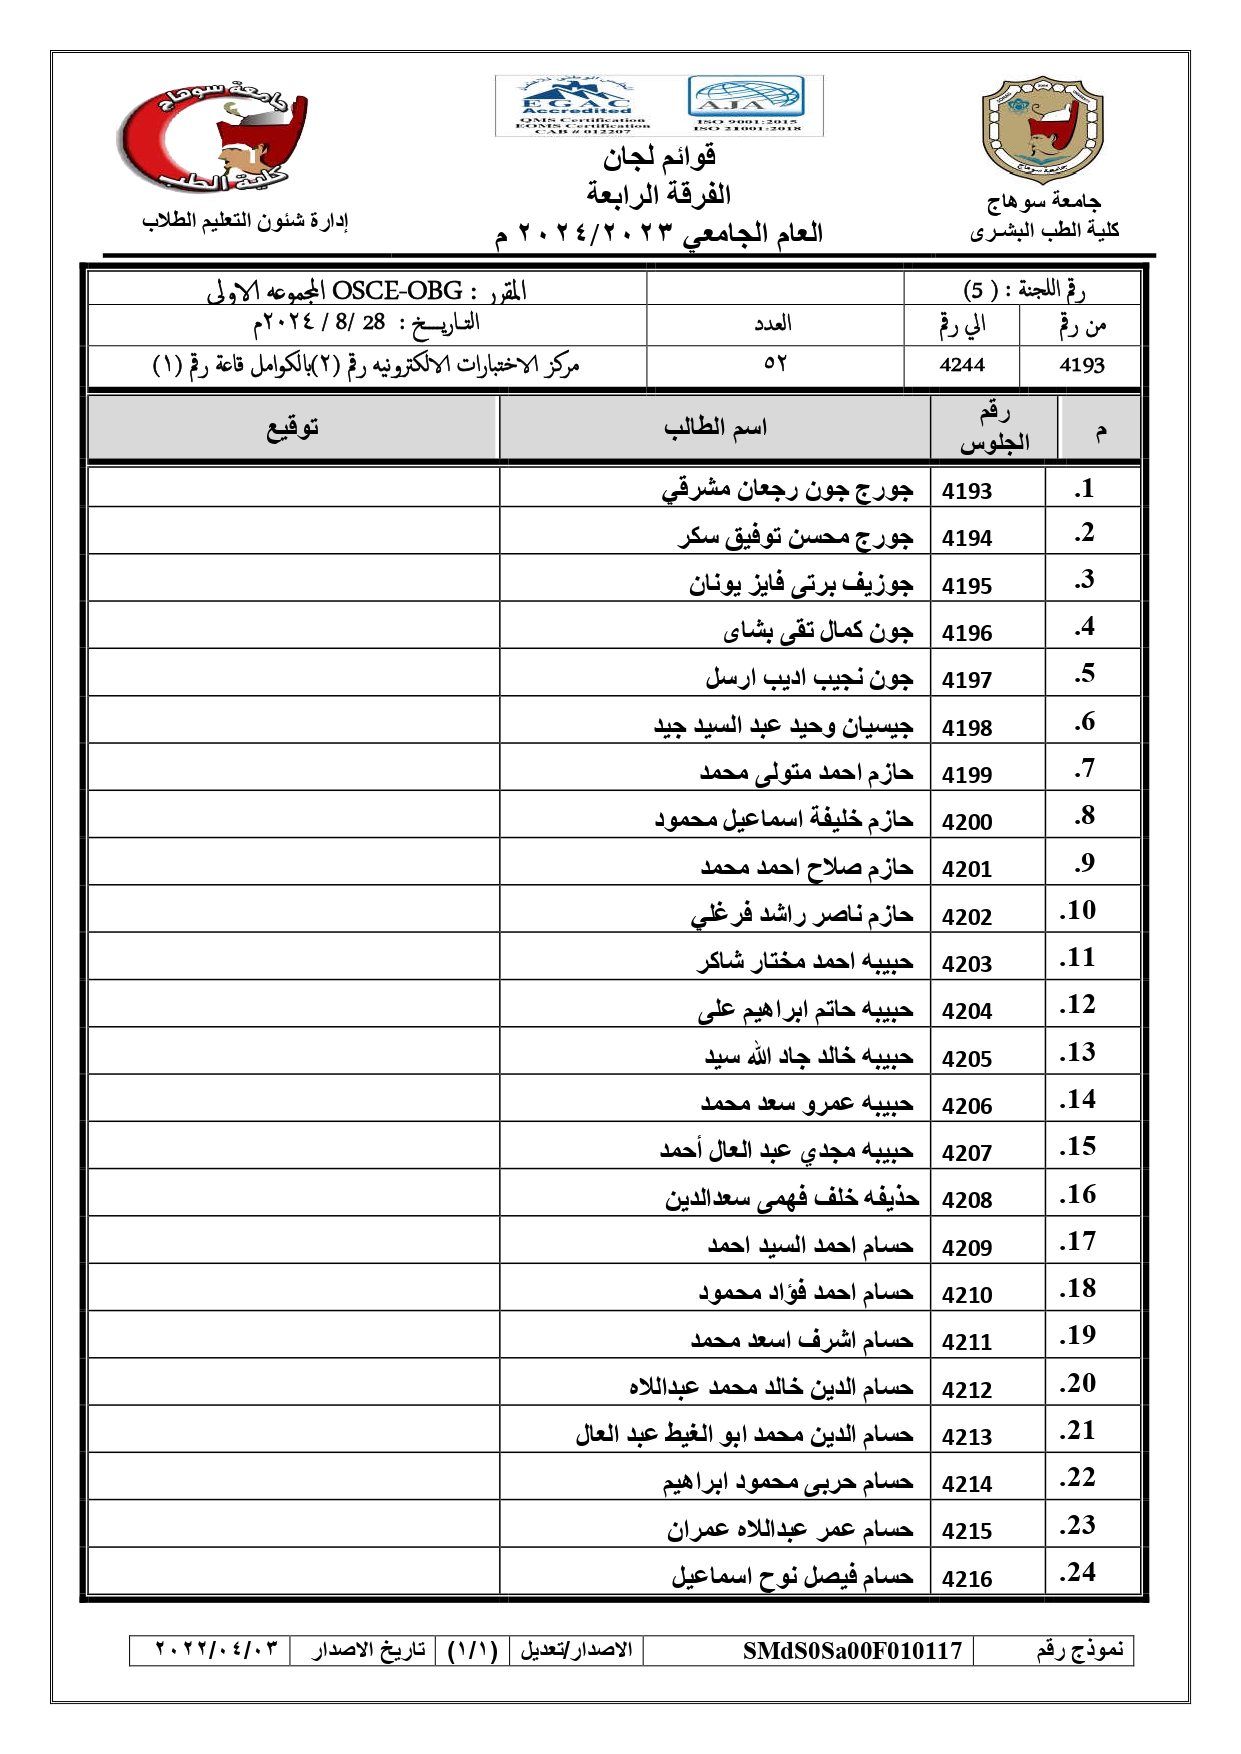 جامعة سوهاج
كلية الطب
إدارة شئون التعليم الطلاب
EGAC
Accredited
QMS Certification
EOMS Certification
CAB # 012207
AJA
ISO 9001:2015
ISO 21001:2018
قوائم لجان
الفرقة الرابعة
العام الجامعي ٢٠٢٤/٢٠٢٣ م
جامعة سوهاج
جامعة سوهاج
كلية الطب البشرى
رقم اللجنة : ( 5) المقرر : OSCE-OBG المجموعه الاولى
من رقم الي رقم العدد التاريـــخ : 28 /8 / ٢٠٢٤م
4193 4244 ٥٢ مركز الاختبارات الالكترونيه رقم (٢)بالكوامل قاعة رقم (١)
م رقم الجلوس اسم الطالب توقيع
1. 4193 جورج جون رجعان مشرقي
2. 4194 جورج محسن توفيق سكر
3. 4195 جوزيف برتى فايز يونان
4. 4196 جون كمال تقى بشاى
5. 4197 جون نجيب اديب ارسل
6. 4198 جيسيان وحيد عبد السيد جيد
7. 4199 حازم احمد متولى محمد
8. 4200 حازم خليفة اسماعيل محمود
9. 4201 حازم صلاح احمد محمد
10. 4202 حازم ناصر راشد فرغلي
11. 4203 حبيبه احمد مختار شاكر
12. 4204 حبيبه حاتم ابراهيم على
13. 4205 حبيبه خالد جاد الله سيد
14. 4206 حبيبه عمرو سعد محمد
15. 4207 حبيبه مجدي عبد العال أحمد
16. 4208 حذيفه خلف فهمى سعدالدين
17. 4209 حسام احمد السيد احمد
18. 4210 حسام احمد فؤاد محمود
19. 4211 حسام اشرف اسعد محمد
20. 4212 حسام الدين خالد محمد عبداللاه
21. 4213 حسام الدين محمد ابو الغيط عبد العال
22. 4214 حسام حربى محمود ابراهيم
23. 4215 حسام عمر عبداللاه عمران
24. 4216 حسام فيصل نوح اسماعيل
نموذج رقم SMdS0Sa00F010117 الاصدار/تعديل (١/١) تاريخ الاصدار ٢٠٢٢/٠٤/٠٣